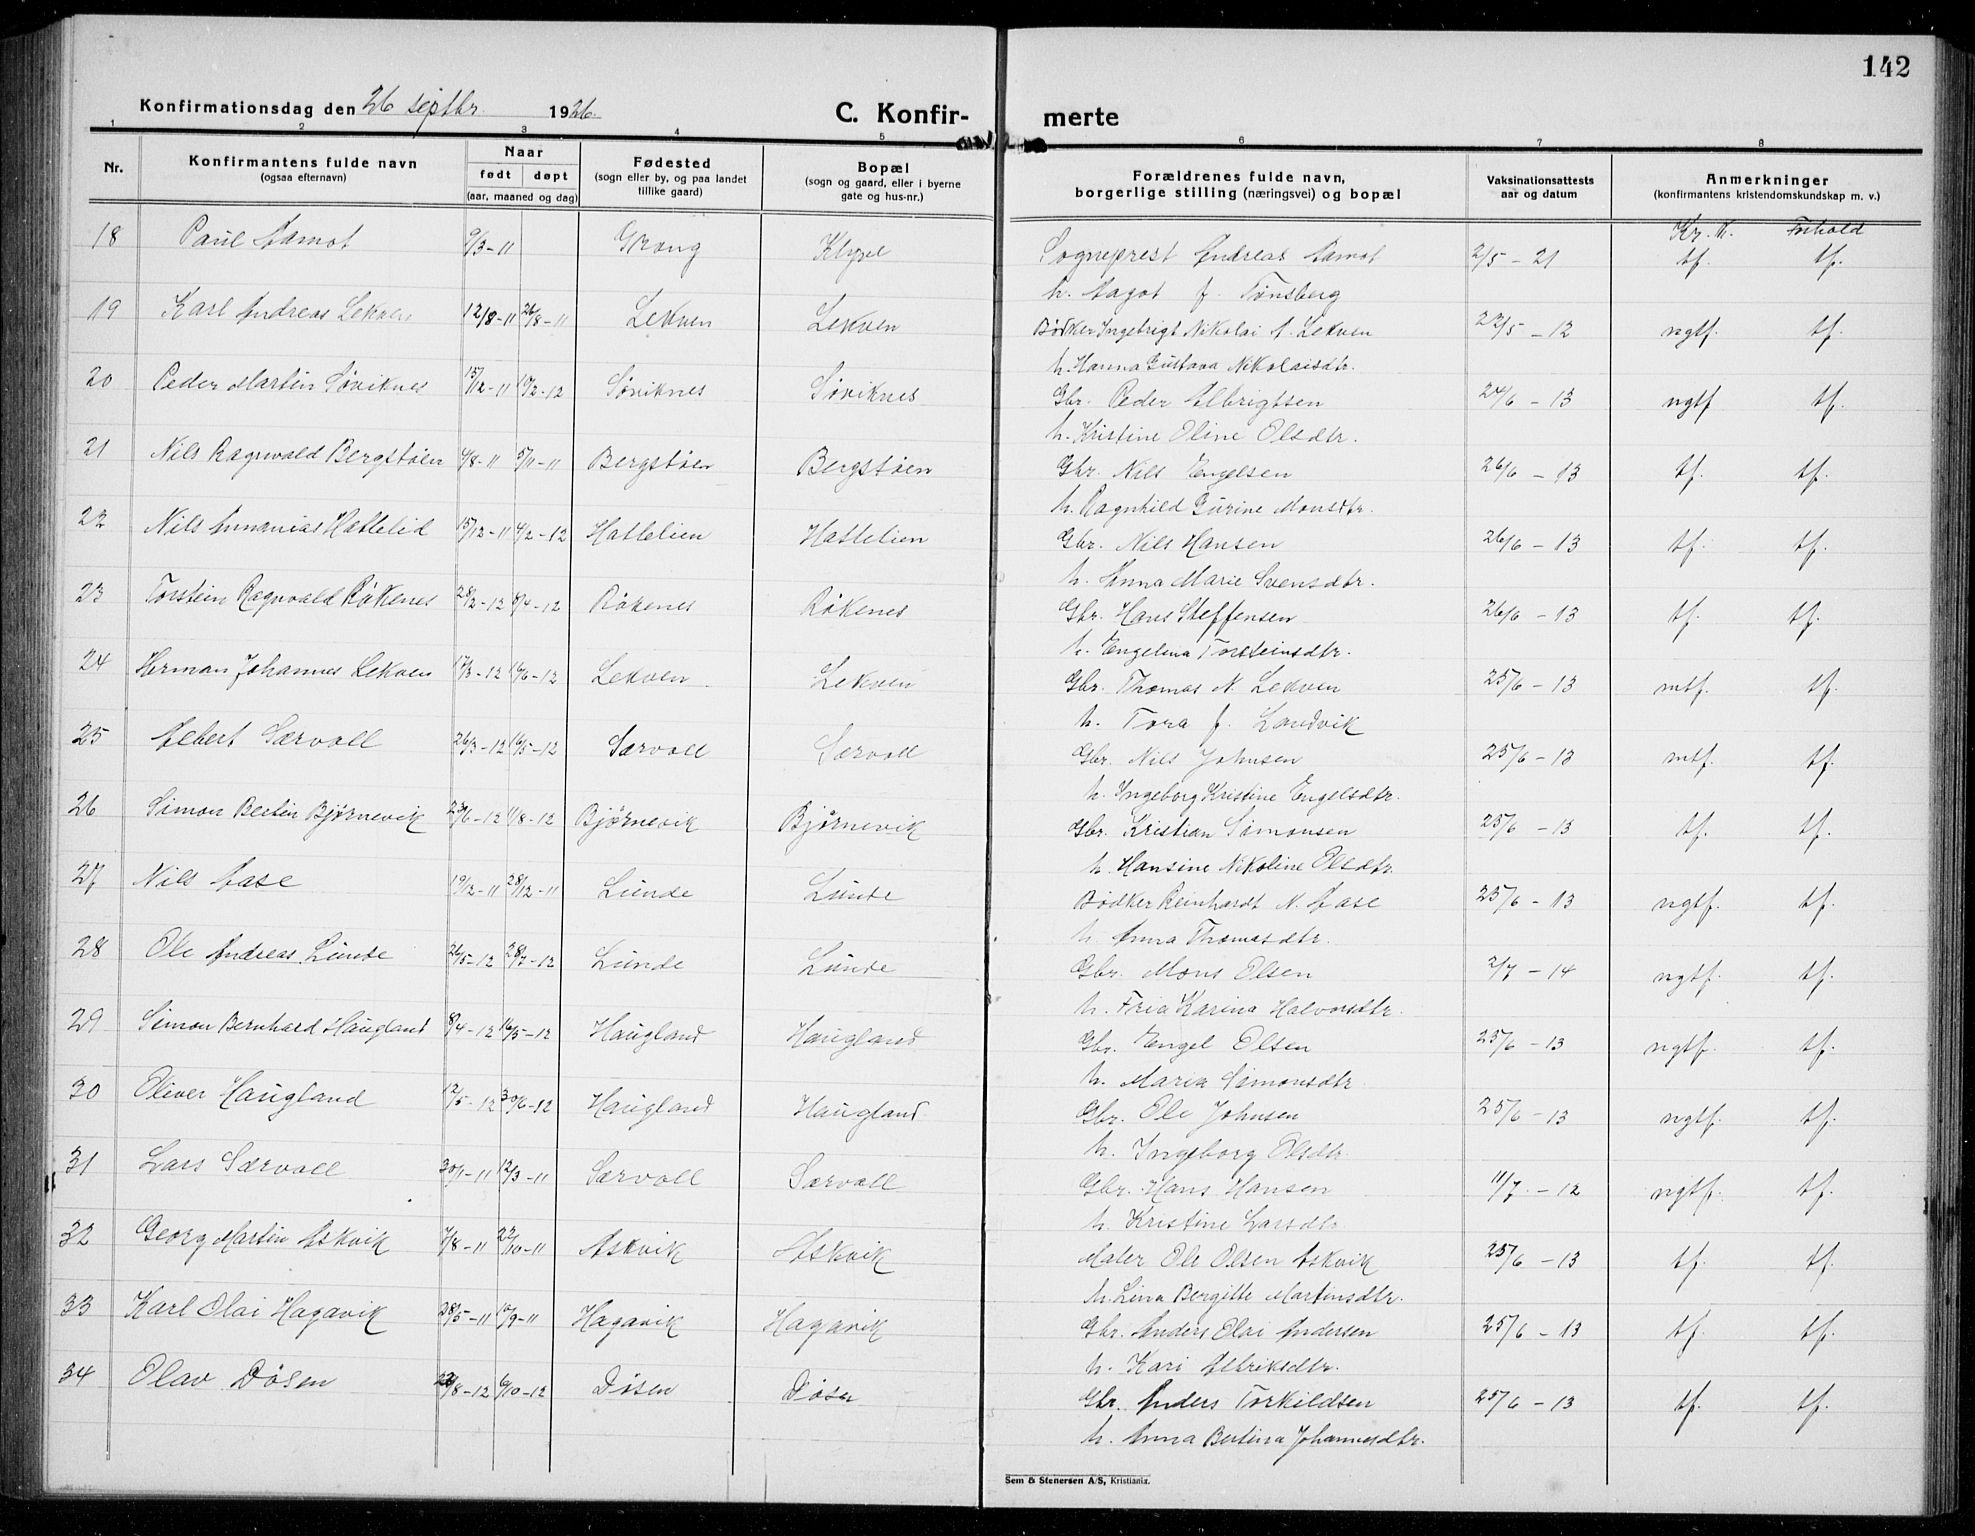 142
Konfirmationsdag den 26 septbr. 1926.
C. Konfir- merte
1 2 3 4 5 6 7 8
Nr.
Konfirmantens fulde navn
(ogsaa efternavn)
Naar
født døpt
(aar, maaned og dag)
Fødested
(sogn eller by, og paa landet
tillike gaard)
Bopæl
(sogn og gaard, eller i byerne
gate og hus-nr.)
Forældrenes fulde navn,
borgerlige stilling (næringsvei) og bopæl
Vaksinationsattests
aar og datum
Anmerkninger
(konfirmantens kristendomskundskap m. v.)
Kr. k. Forhold
18 Paul Aamot 9/3-11 Grong Klyve Sogneprest Andreas Aamot 2/5 - 21 tf. tf.
h. Aagot f. Tønsberg
19 Karl Andreas Lekven 12/8-11 26/8-11 Lekven Lekven Bødker Ingebrigt Nikolai A. Lekven 22/5 - 12 ngtf. tf.
h. Hanna Gustava Nikolaisdtr.
20 Peder Martin Søviknes 15/12-11 10/2-12 Søviknes Søviknes Gbr. Peder Albrigtsen 24/6 - 13 ngtf tf.
h. Kristine Oline Olsdtr.
21 Nils Ragnvald Bergstøen 4/8-11 5/11-11 Bergstøen Bergstøen Gbr. Nils Engelsen 26/6 - 13 tf. tf.
h. Ragnhild Gurine Monsdtr.
22 Nils Annanias Hattelid 15/12-11 4/2-12 Hattelien Hattelien Gbr. Nils Hansen 26/6 - 13 tf. tf.
h. Anna Marie Svensdtr.
23 Torstein Ragnvald Røkenes 28/2-12 8/4-12 Røkenes Røkenes Gbr. Hans Steffensen 26/6 - 13 tf. tf.
h. Engelina Torsteinsdtr.
24 Herman Johannes Lekven 17/3-12 16/6-12 Lekven Lekven Gbr. Thomas N. Lekven 25/6 - 13 mtf. tf.
h. Tora f. Landvik
25 Albert Særvoll 26/3-12 16/5-12 Særvoll Særvoll Gbr. Nils Johnsen 25/6 - 13 mtf. tf.
h. Ingeborg Kristine Engelsdtr.
26 Simon Bertin Bjørnevik 23/6-12 11/8-12 Bjørnevik Bjørnevik Gbr. Kristian Simonsen 25/6 - 13 tf. tf.
h. Hansine Nikoline Olsdtr.
27 Nils Aase 19/12-11 28/12-11 Lunde Lunde Bødker Reinhardt N. Aase 25/6 - 13 ngtf. tf.
h. Anna Thomasdtr.
28 Ole Andreas Lunde 26/5-12 28/7-12 Lunde Lunde Gbr. Mons Olsen 2/7 - 14 ngtf. tf.
h. Fria Karina Halvorsdtr.
29 Simon Bernhard Haugland 8/4-12 16/5-12 Haugland Haugland Gbr. Engel Olsen 25/6 - 13 ngtf. tf.
h. Maria Simonsdtr.
30 Oliver Haugland 12/5-12 30/6-12 Haugland Haugland Gbr. Ole Johnsen 25/6 - 13 ngtf. tf.
h. Ingeborg Olsdtr.
31 Lars Særvoll 20/1-11 12/3-11 Særvoll Særvoll Gbr. Hans Hansen 11/7 - 12 ngtf. tf.
h. Kristine Larsdtr.
32 Georg Martin Askvik 7/8-11 22/10-11 Askvik Askvik Maler Ole Olsen Askvik 25/6 - 13 tf. tf.
h. Lina Bergitte Martinsdtr.
33 Karl Olai Hagavik 28/5-11 10/9-11 Hagavik Hagavik Gbr. Anders Olai Andersen 25/6 - 13 tf. tf.
h. Kari Albriksdtr.
34 Olav Døsen /8-12 6/10-12 Døsen Døsen Gbr. Anders Torkildsen 25/6 - 13 tf. tf.
h. Anna Bertina Johannesdtr.
Sem & Stenersen A/S, Kristiania.